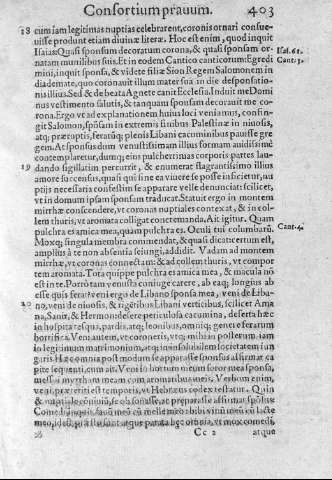 Consortium prauum. 403
18 cum iam legitimas nuptias celebrarent, coronis ornari consue-
uisse produnt etiam diuinæ literæ. Hoc est enim, quod inquit
Isaias: Quasi sponsum decoratum corona, & quasi sponsam or- Isai. 61.
natam munilibus suis. Et in eodem Cantico canticorum: Egredi Cant. 3.
mini, inquit sponsa, & videte filiæ Sion Regem Salomonem in
diademate, quo coronauit illum mater sua in die desponsatio-
nis illius. Sed & de beata Agnete canit Ecclesia. Induit me Domi
nus vestimento salutis, & tanquam sponsam decorauit me co-
rona. Ergo vt ad explanationem huius loci veniamus, confin-
git Salomon, spōsam in extremis finibus Palestinæ in niuosis,
atq; præruptis, ferarūq; plenis Libani cacuminibus pauisse gre
gem. At sponsus dum venustissimam illius formam auidissimè
contemplaretur, dumq; eius pulcherrimas corporis partes lau-
19 dando sigillatim percurrit, & enumerat flagrantissimo illius
amore succensus, quasi qui sine ea viuere se posse inficietur, nu
ptijs necessaria confestim se apparare velle denunciat: scilicet,
vt in domum ipsam sponsam traducat. Statuit ergo in montem
myrrhæ conscendere, vt coronas nuptiales contexat, & in col-
lem thuris, vt aromata colligat concremanda. Ait igitur. Quam
pulchra es amica mea, quam pulchra es. Oculi tui columbarū. Cant. 4.
Moxq; singula membra commendat, & quasi dicat certum est,
amplius à te non absentia seiungi, addidit. Vadam ad montem
myrrhæ, vt coronas connectam: & ad collem thuris, vt compor
tem aromata. Tota quippe pulchra es amica mea, & macula nō
est in te. Porrò tam venusta coniuge carere, ab eaq; longius ab
esse quis ferat? veni ergo de Libano sponsa mea, veni de Liba-
20 no, veni de niuosis, & rigētibus Libani verticibus, scilicet Ama
na, Sanir, & Hermon: desere periculosa cacumina, deserta hæc
inhospita tesqua, pardis, atq; leonibus, omniq; genere ferarum
horrifica. Veni autem, vt coroneris, vtq; mihi in posterum iam
in legitimum matrimonium, atq; in insolubilem societatem iun
garis. Hæc omnia post modum se apparasse sponsus affirmat ca
pite sequenti, cum ait. Veni in hortum meum soror mea sponsa,
messui myrrham meam cum aromatibus meis. Verbum enim,
veni, præteriti est temporis, vt Hebræus codex testatur.
atq;
Cc 2 atque